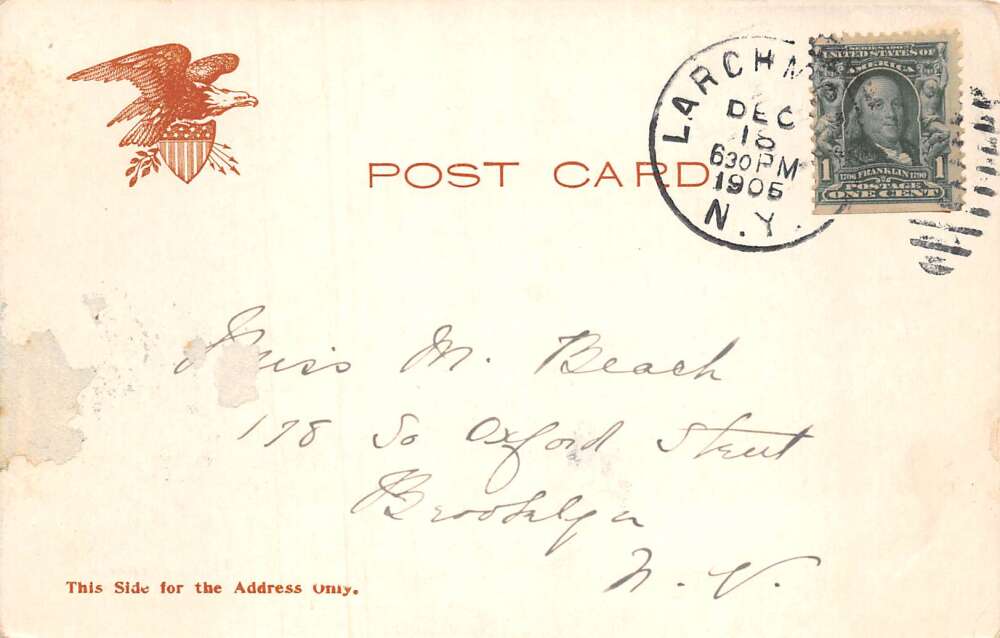 POST CARD
LARCHM
DEC
18
630 PM
1905
N.Y.
SERIES 1902
UNITED STATES OF
AMERICA
1 1
1706 FRANKLIN 1790
POSTAGE
ONE CENT
Miss M. Beach
178 So Oxford Street
Brooklyn
N.Y.
This Side for the Address Only.